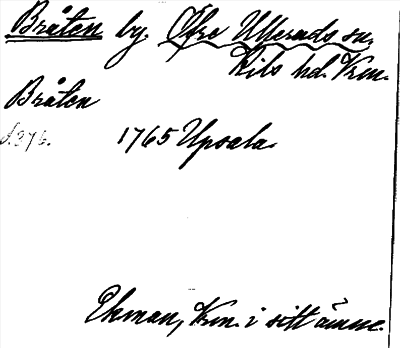 Bråten by, Öfre Ulleruds sn,
Kils hd. Vrm.
Bråten
s. 376. 1765 Upsala.
Ekman, Vrm. i sitt ämne.